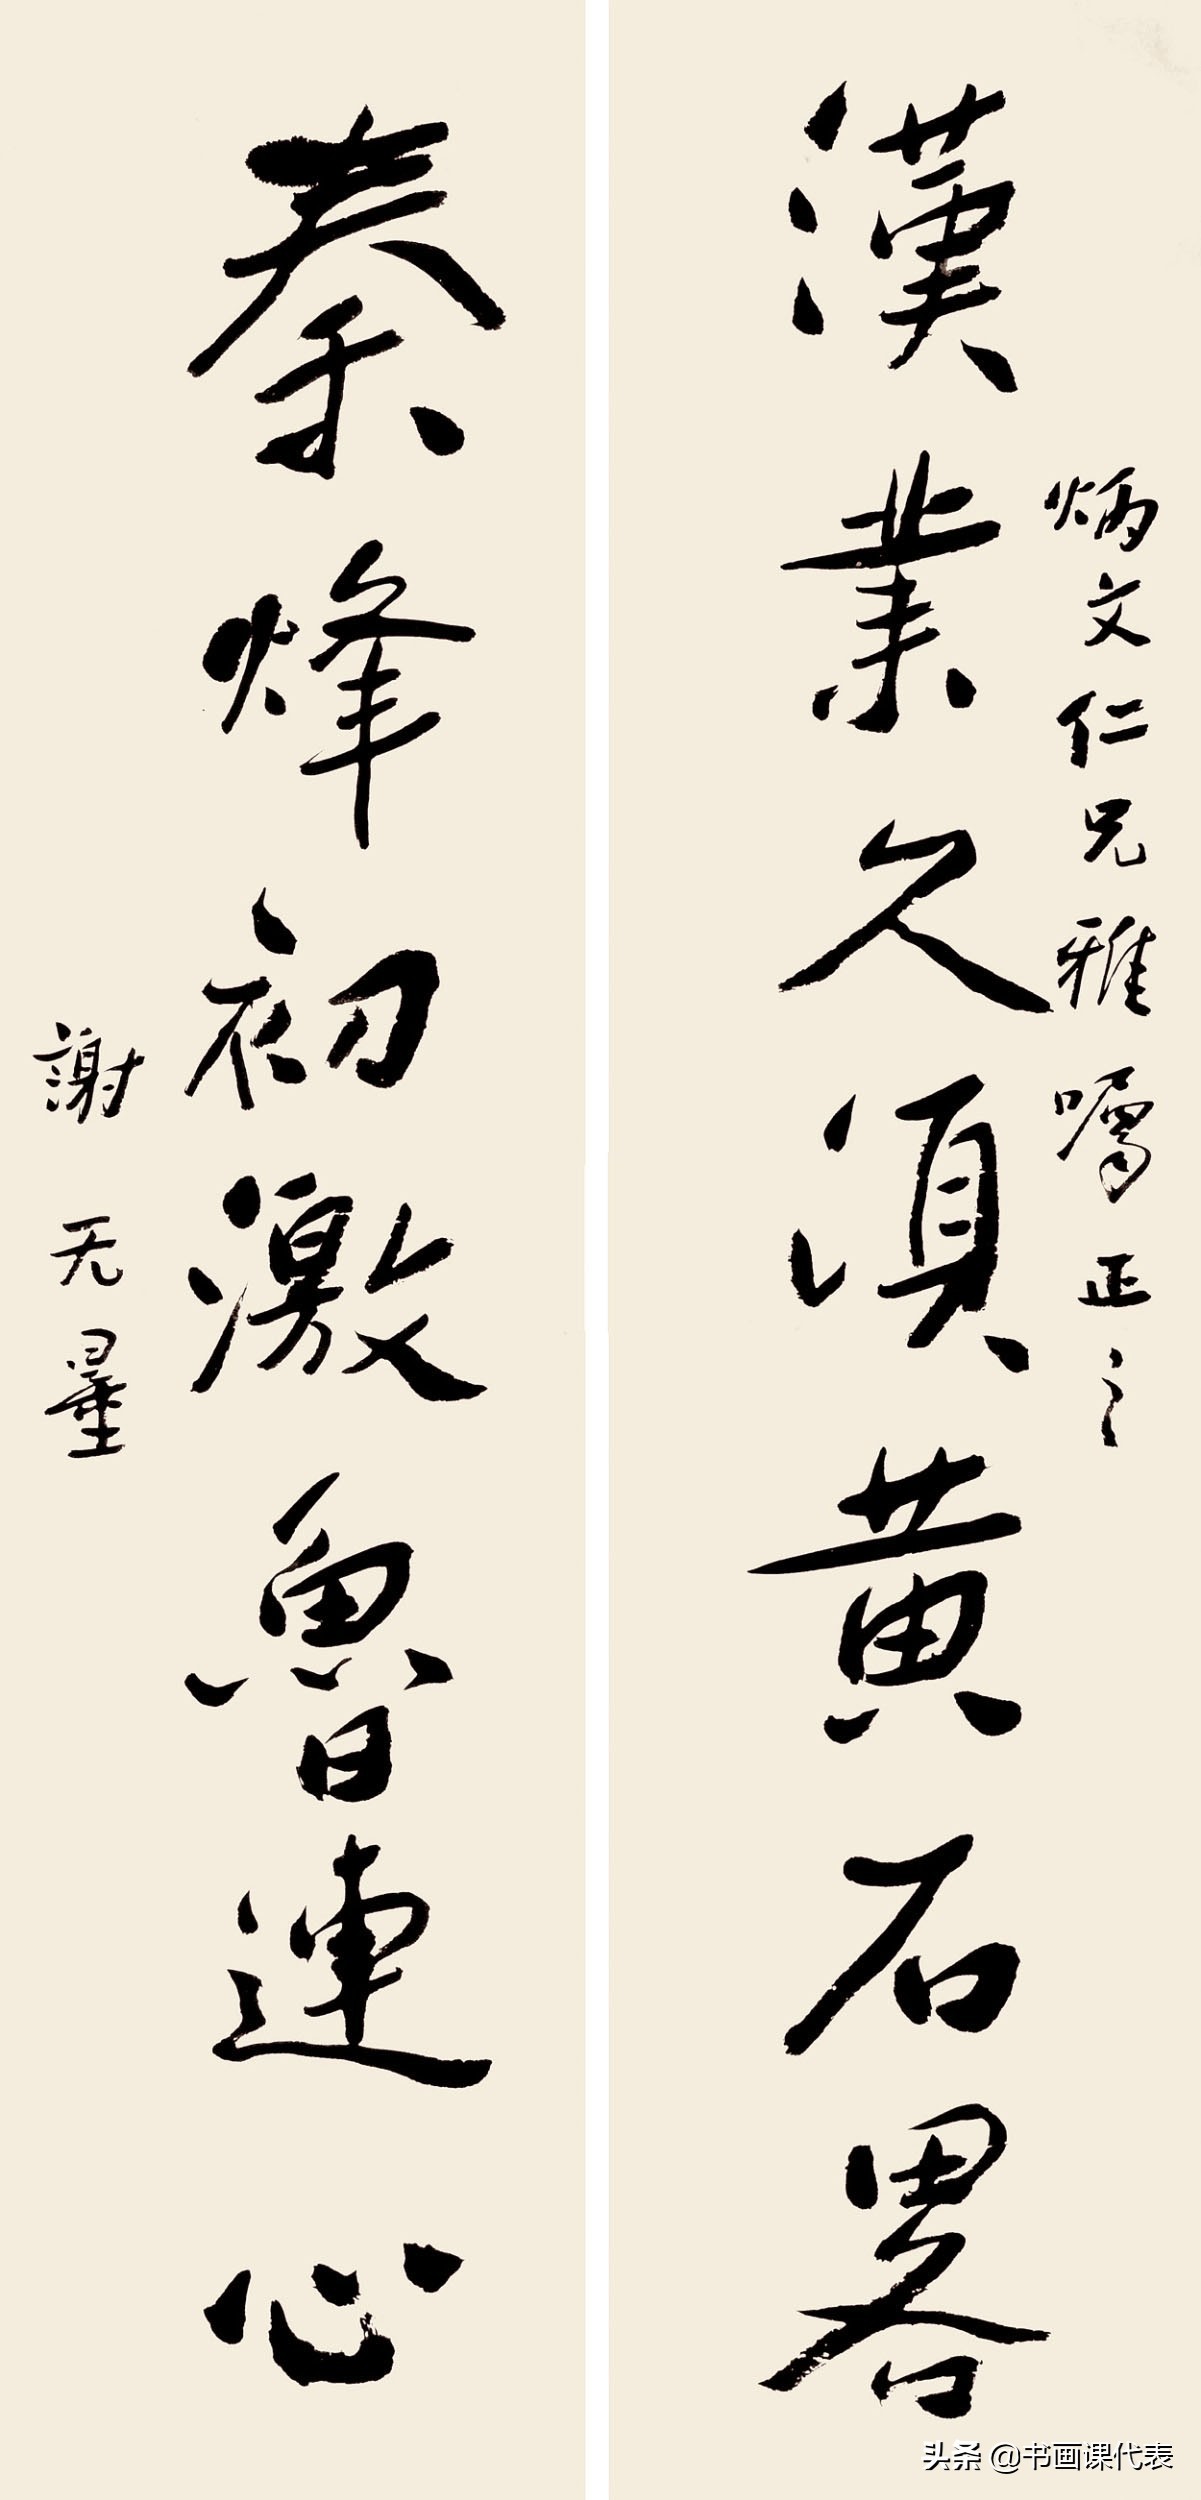 炳文仁兄雅嘱正之
漢業久湏黄石畧
秦烽初激魯連心
謝无量
头条 @书画课代表